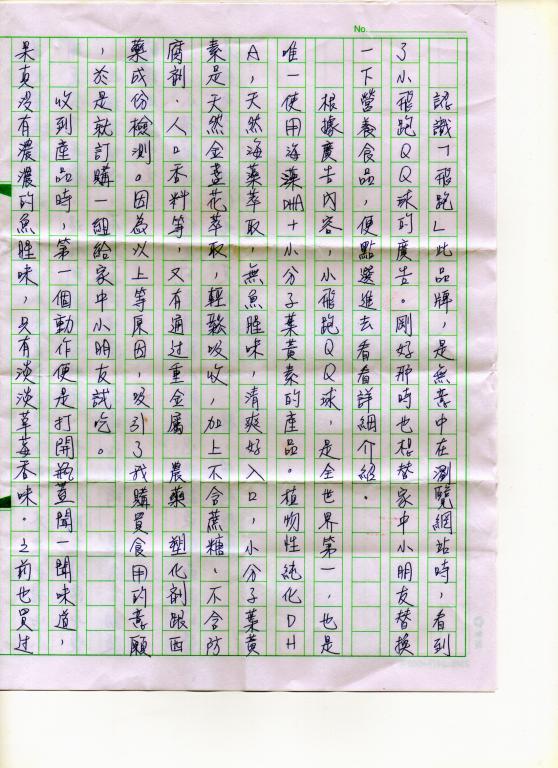 No.
認識「飛跑」此品牌，是無意中在瀏覽網站時，看到
了小飛跑QQ球的廣告。剛好那時也想替家中小朋友替換
一下營養食品，便點選進去看看詳細介紹。
根據廣告內容，小飛跑QQ球，是全世界第一，也是
唯一使用海藻DHA＋小分子葉黃素的產品。植物性純化DH
A，天然海藻萃取，無魚腥味，清爽好入口，小分子葉黃
素是天然金盞花萃取，輕鬆吸收，加上不含蔗糖、不含防
腐劑、人口香料等，又有通过重金屬 農藥 塑化劑跟西
藥成份檢測。因為以上等原因，吸引了我購買食用的意願
，於是就訂購一組給家中小朋友試吃。
收到產品時，第一個動作便是打開瓶蓋聞一聞味道，
果真沒有濃濃的魚腥味，只有淡淡草莓香味。之前也買过